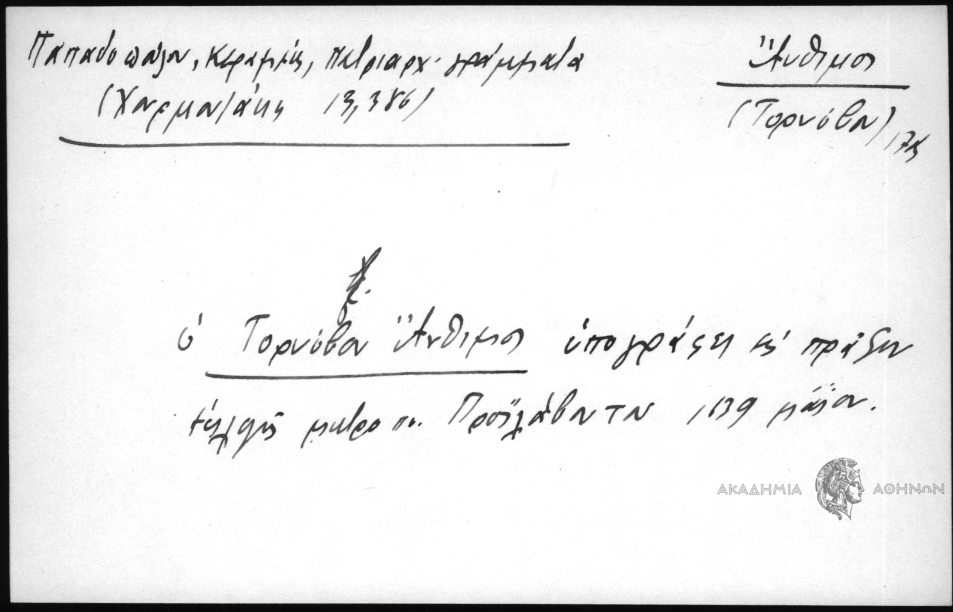 Παπαδοπούλου, Κεραμέως, Πατριαρχ. γράμματα
(Χουρμουζάκης 13, 386)
Ἄνθιμος
(Τορνόβου)
ὁ Τορνόβου Ἄνθιμος ὑπογράφει εἰς πρᾶξιν
ἐκλογῆς μητροπ. Προϊλάβου τῷ 1839 μάϊον.
ΑΚΑΔΗΜΙΑ ΑΘΗΝΩΝ